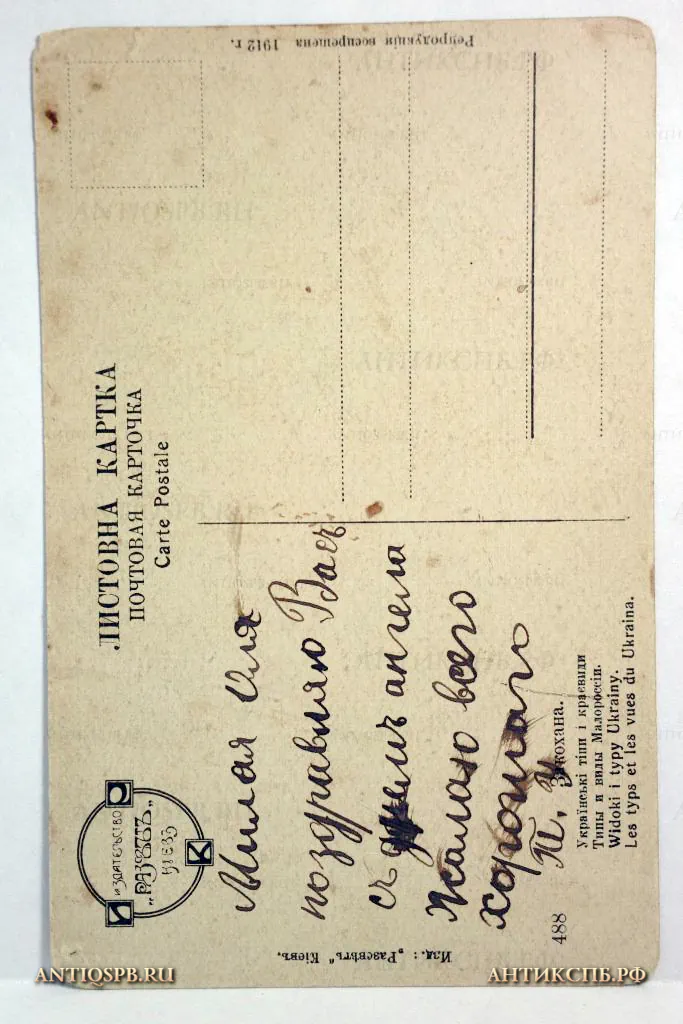 Репродукція воспрещена 1912 г.
ЛИСТОВНА КАРТКА
ПОЧТОВАЯ КАРТОЧКА
Carte Postale
ИЗДАТЕЛЬСТВО
„РАЗСВѢТЪ„
КІЕВЪ
И
К
Милая Оля
поздравляю Васъ
съ днемъ ангела
Желаю всего
хорошаго
Т.
488
Закохана.
Українські тіпи і краєвиди
Типы и виды Малороссіи.
Widoki i typy Ukrainy.
Les typs et les vues du Ukraina.
Изд.: „Разсвѣтъ" Кіевъ.
ANTIQSPB.RU
АНТИКСПБ.РФ